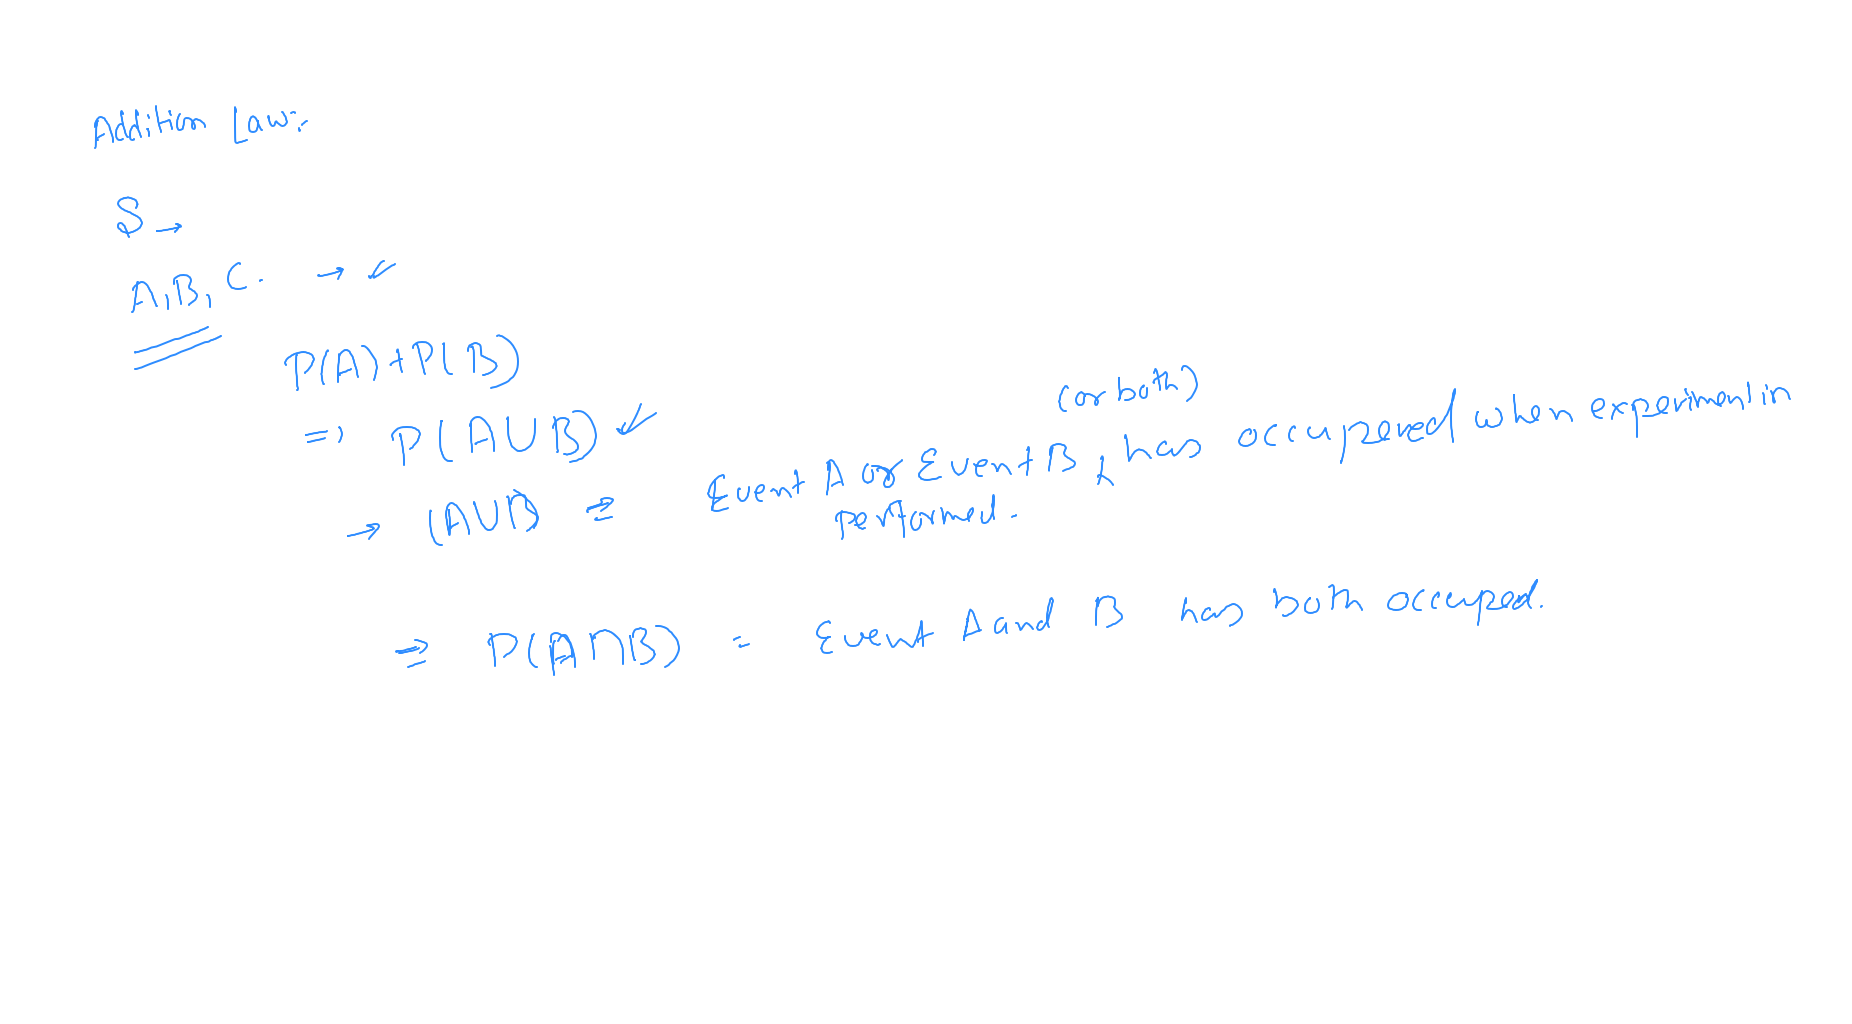 Addition Law:-
S →
A, B, C. →
P(A)+P(B)
=> P(AUB)
(or both)
→ (AUB) = Event A or Event B, has occupered when experiment in
performed.
=> P(A∩B) = Event A and B has both occuped.